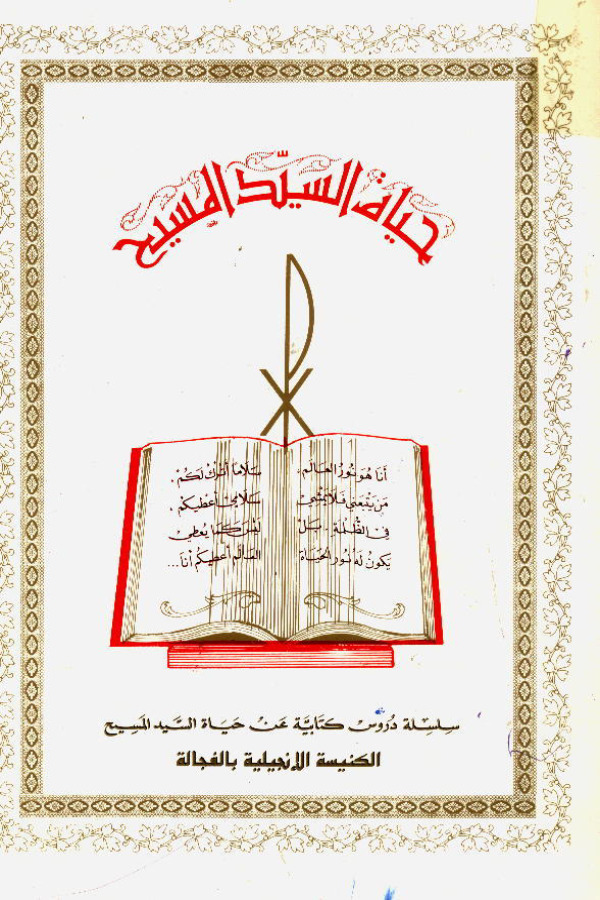 حياة السيّد المسيح
أنَا هُوَ نُورُ العَالَم.
مَن يَتْبَعني فَلَا يَمْشي
في الظُّلمَةِ. بَلْ
يَكونُ لَهُ نُور الحَيَاة
سَلَاماً أترُكُ لَكُمْ.
سَلَامِي أعطيكم.
ليْسَ كمَا يُعطي
العَالَم أعطيكُم أنَا...
سِلسِلة دُروس كتابيَّة عَن حَيَاة السَّيد المَسيح
الكنيسة الإنجيلية بالفجالة